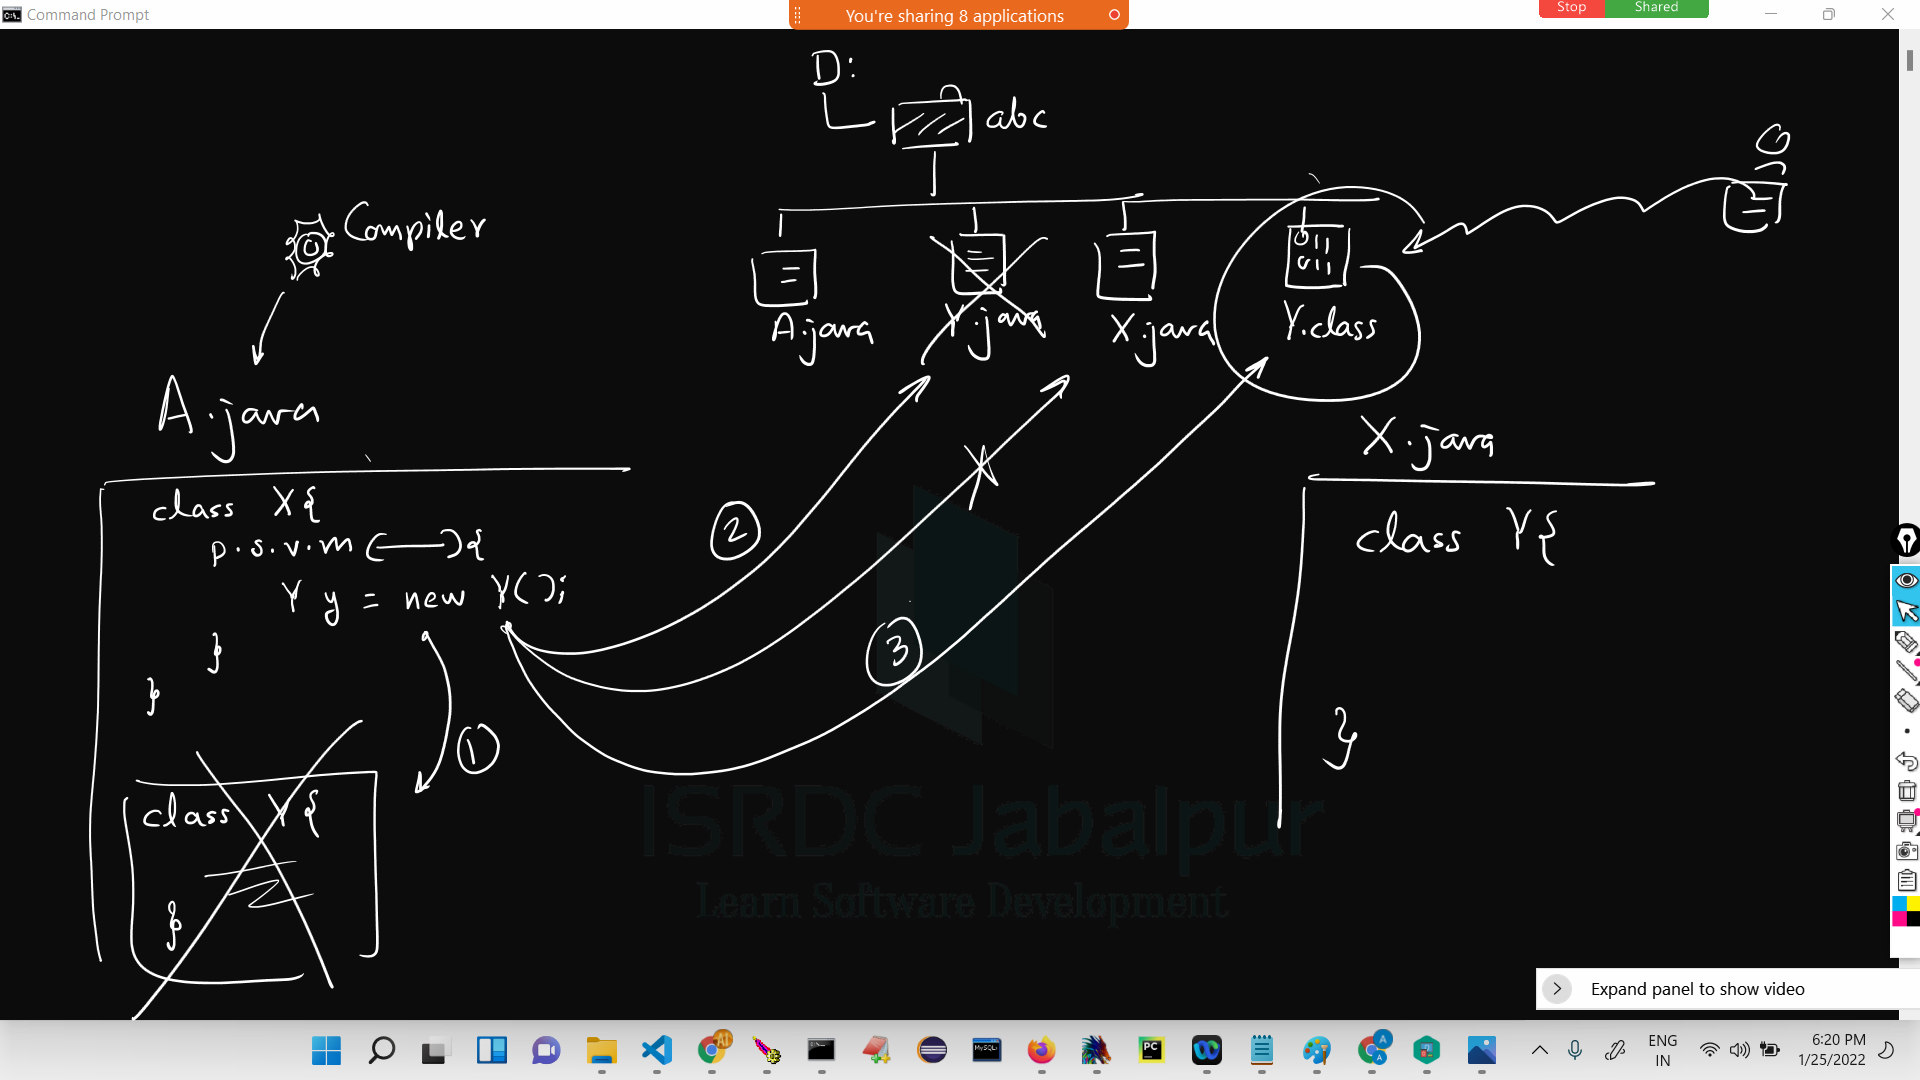 Command Prompt
You're sharing 8 applications
Stop
Shared
D:
abc
Compiler
A.java
Y.java
X.java
Y.class
0 1 1
0 1 1
A.java
class X{
p.s.v.m( ){
Y y = new Y();
}
}
class Y{
}
1
2
3
X.java
class Y{
}
ISRDC Jabalpur
Learn Software Development
Expand panel to show video
AI
MySQL
PC
A
A
ENG
IN
6:20 PM
1/25/2022